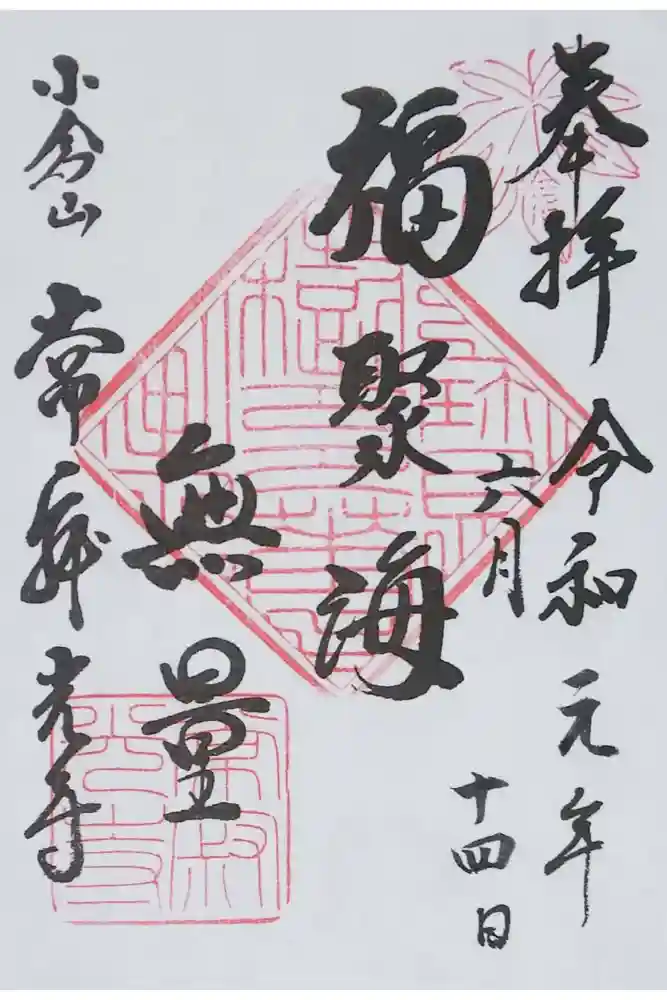 奉拝 令和元年
六月 十四日
福聚海
無量
小倉山 常寂光寺